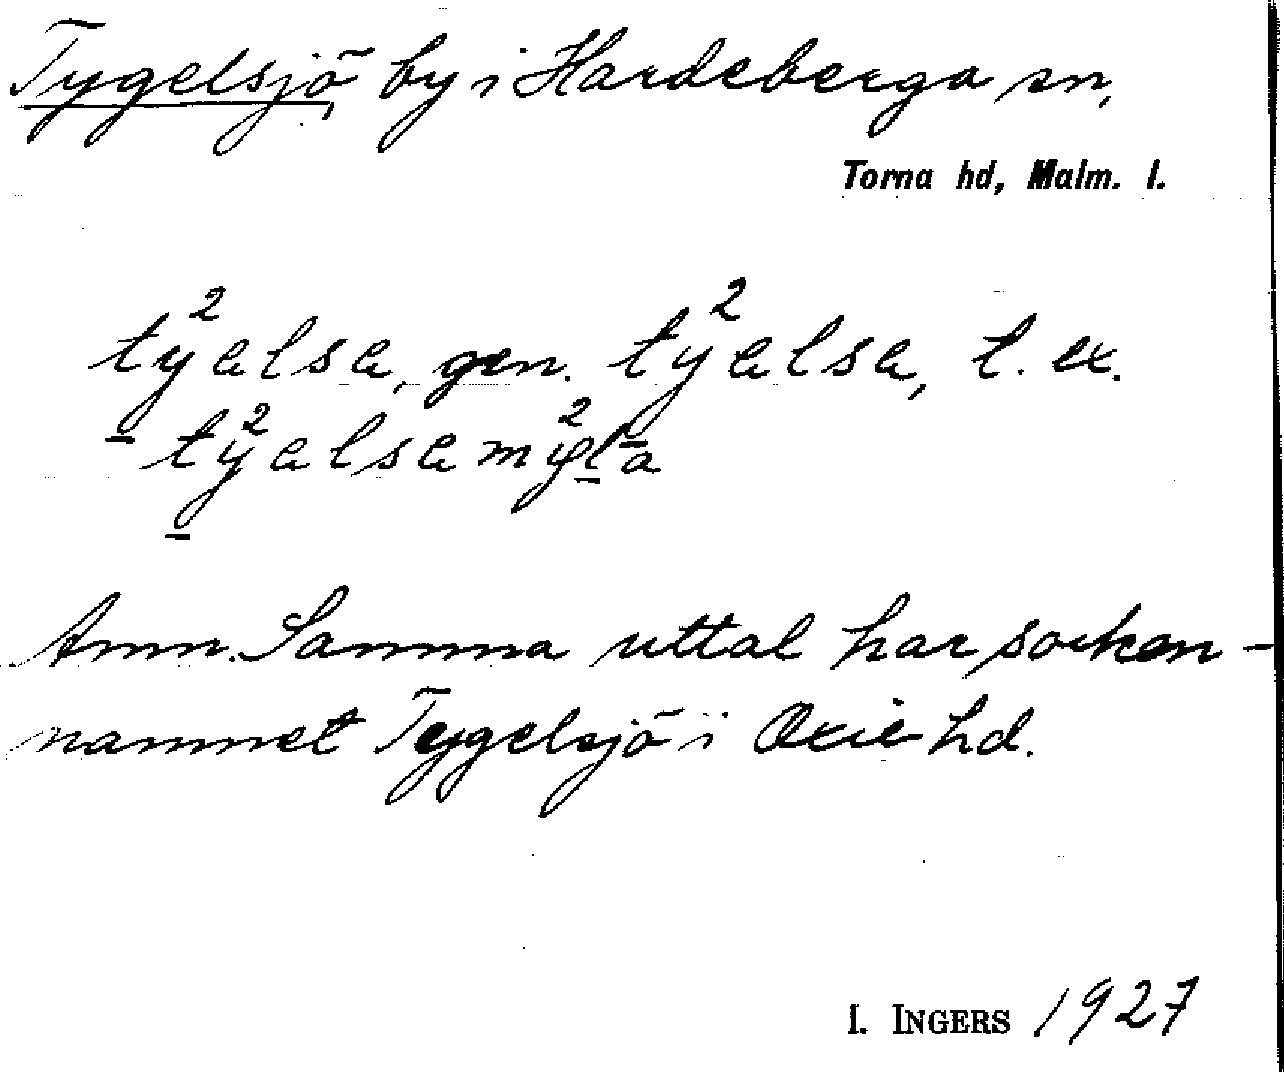 Tygelsjö, by i Hardeberga sn,
Torna hd, Malm. l.
ty²elsa, gen. ty²elsa, t. ex.
ty²elsamy²la
Anm. Samma uttal har socken-
namnet Tygelsjö i Oxie hd.
I. INGERS 1927